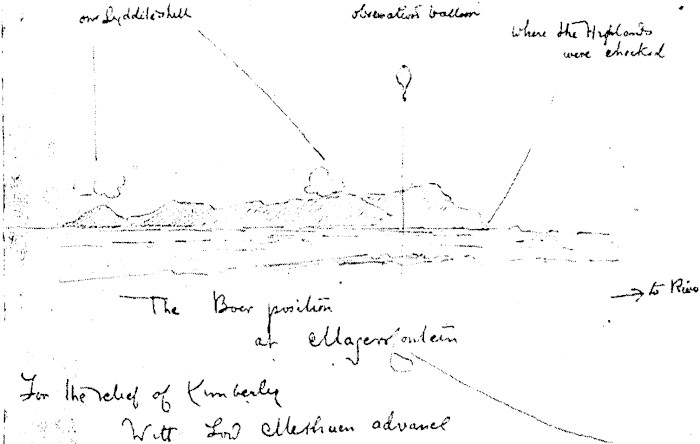 our Lyddite shell
observation balloon
where the Highlands
were checked
→ to River
The Boer position
at Magersfontein
For the relief of Kimberley
With Lord Methuen advance